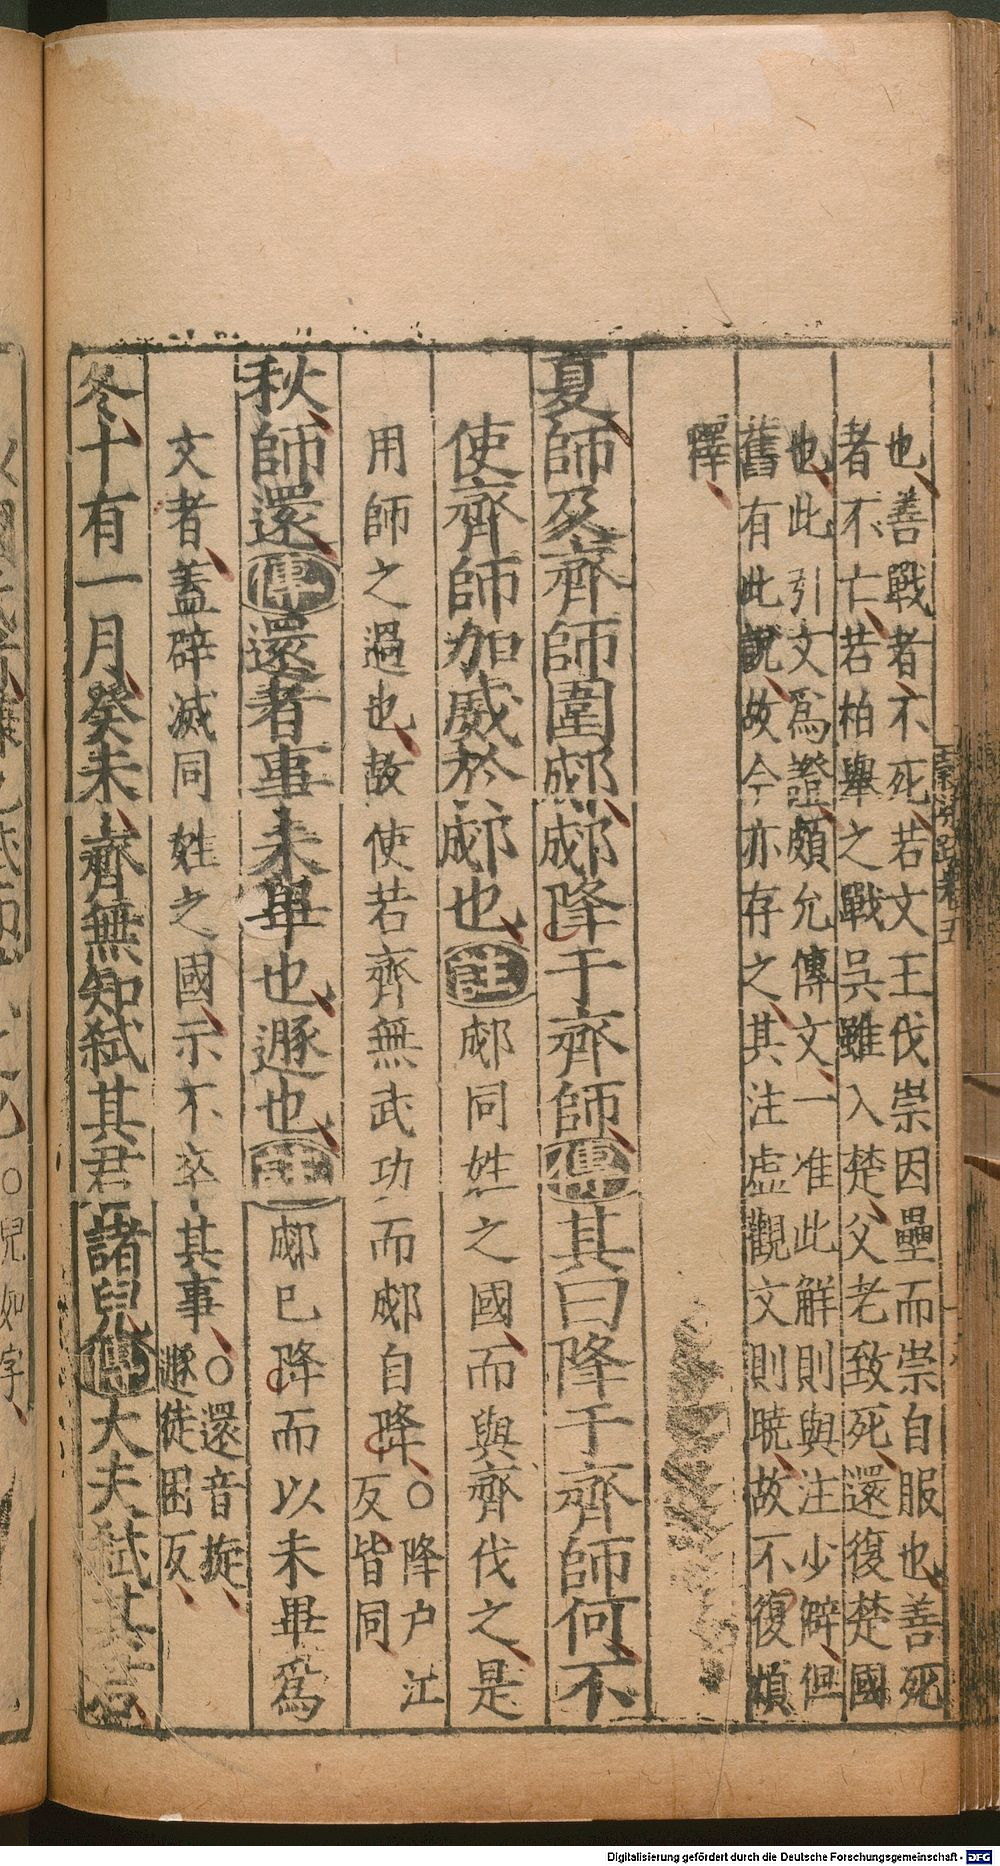 也善戰者不死若文王伐崇因壘而崇自服也善死
者不亡若柏舉之戰吳雖入楚父老致死還復楚國
也此引文為證頗允傳文一准此解則與注少僻但
舊有此說故今亦存之其注虛觀文則曉故不復煩
釋
夏師及齊師圍郕郕降于齊師傳其曰降于齊師何不
使齊師加威於郕也註郕同姓之國而與齊伐之是
用師之過也故使若齊無武功而郕自降○降戶江
反皆同
秋師還傳還者事未畢也遯也註郕已降而以未畢為
文者蓋辟滅同姓之國示不卒其事○還音旋
遯徒困反
冬十有一月癸未齊無知弒其君諸兒傳大夫弒其君
○兒如字
Digitalisierung gefördert durch die Deutsche Forschungsgemeinschaft - DFG